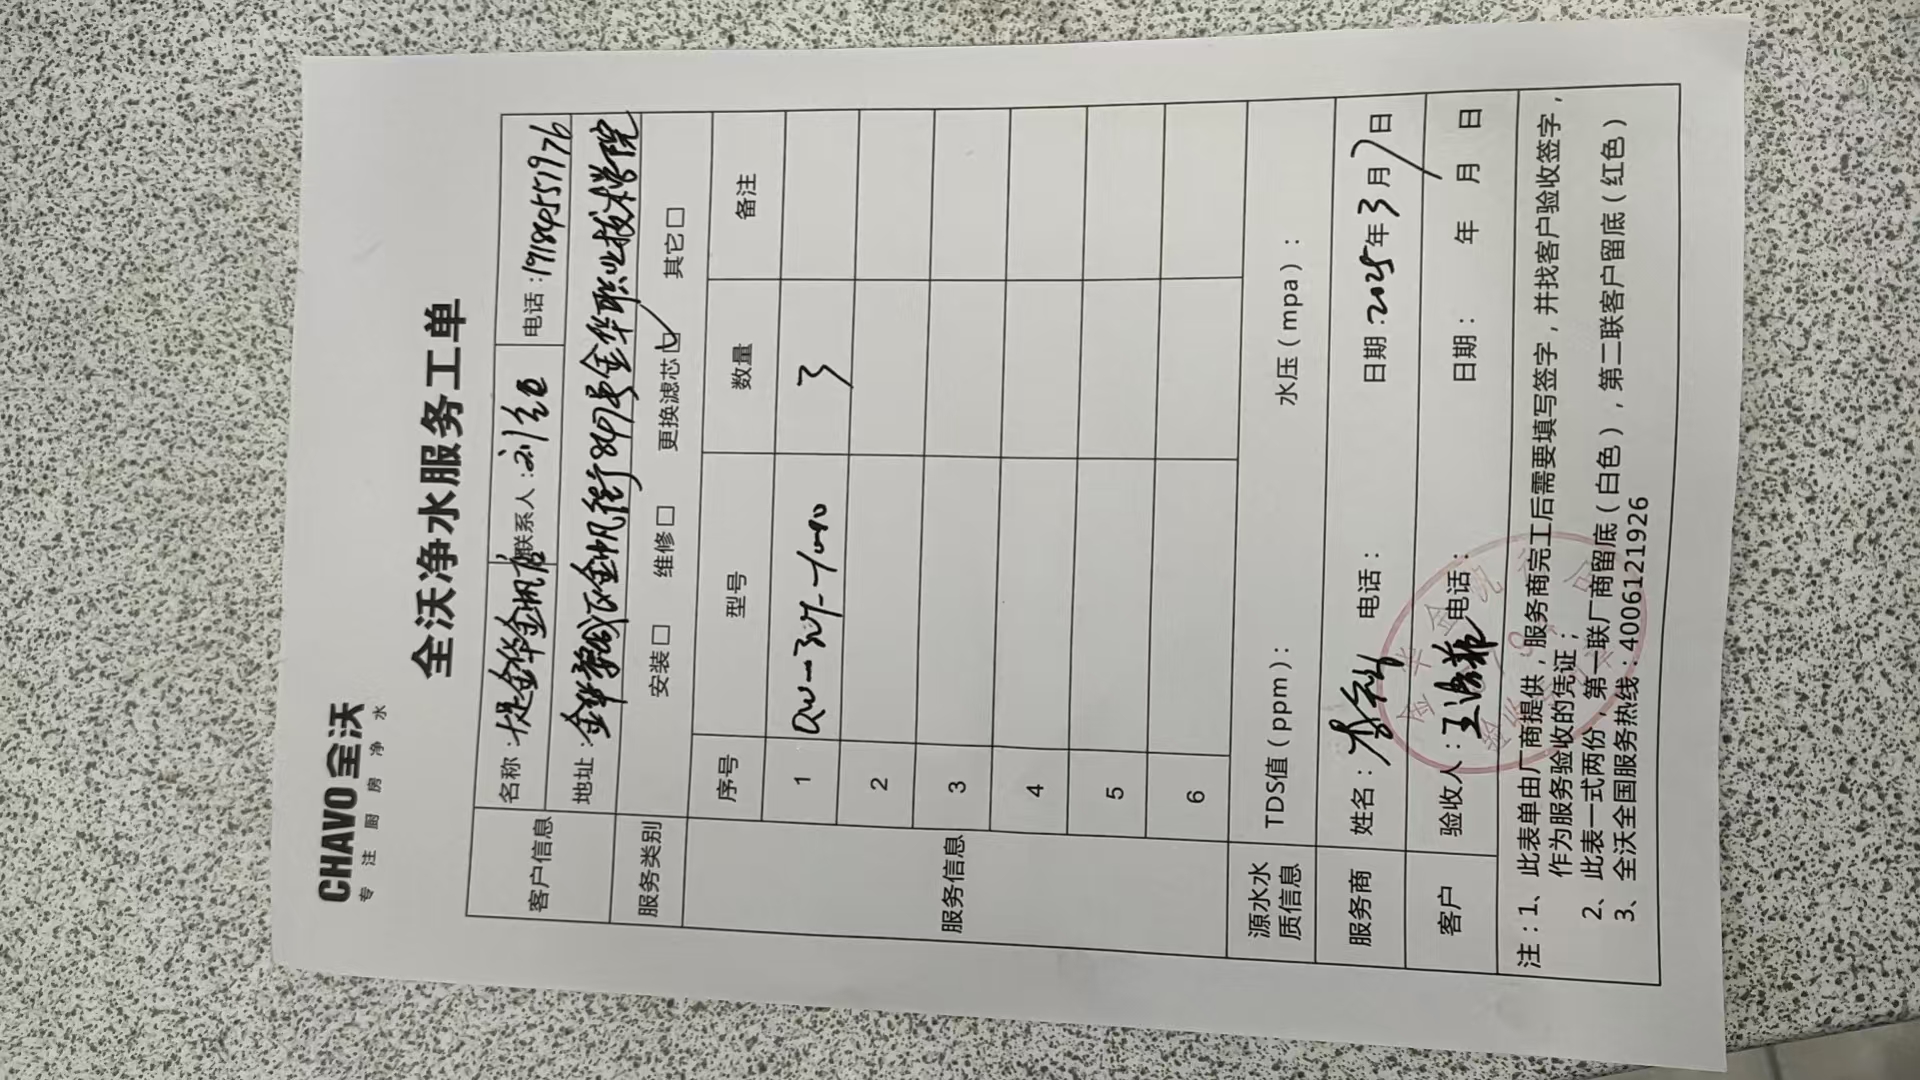 CHAVO 全沃
专注厨房净水
全沃净水服务工单
客户信息
名称: 堤金华金帆店 联系人: 刘 电话: 19184551976
地址: 金华婺城区金帆街847号金华职业技术学院
服务类别 安装□ 维修□ 更换滤芯☑ 其它□
服务信息
序号 型号 数量 备注
1 3
2
3
4
5
6
源水水质信息 TDS值(ppm): 水压(mpa):
服务商 姓名: 电话: 日期: 2025年3月7日
客户 验收人: 王 电话: 日期: 年 月 日
注:1、此表单由厂商提供,服务商完工后需要填写签字,并找客户验收签字,
作为服务验收的凭证;
2、此表一式两份,第一联厂商留底(白色),第二联客户留底(红色)
3、全沃全国服务热线:4006121926